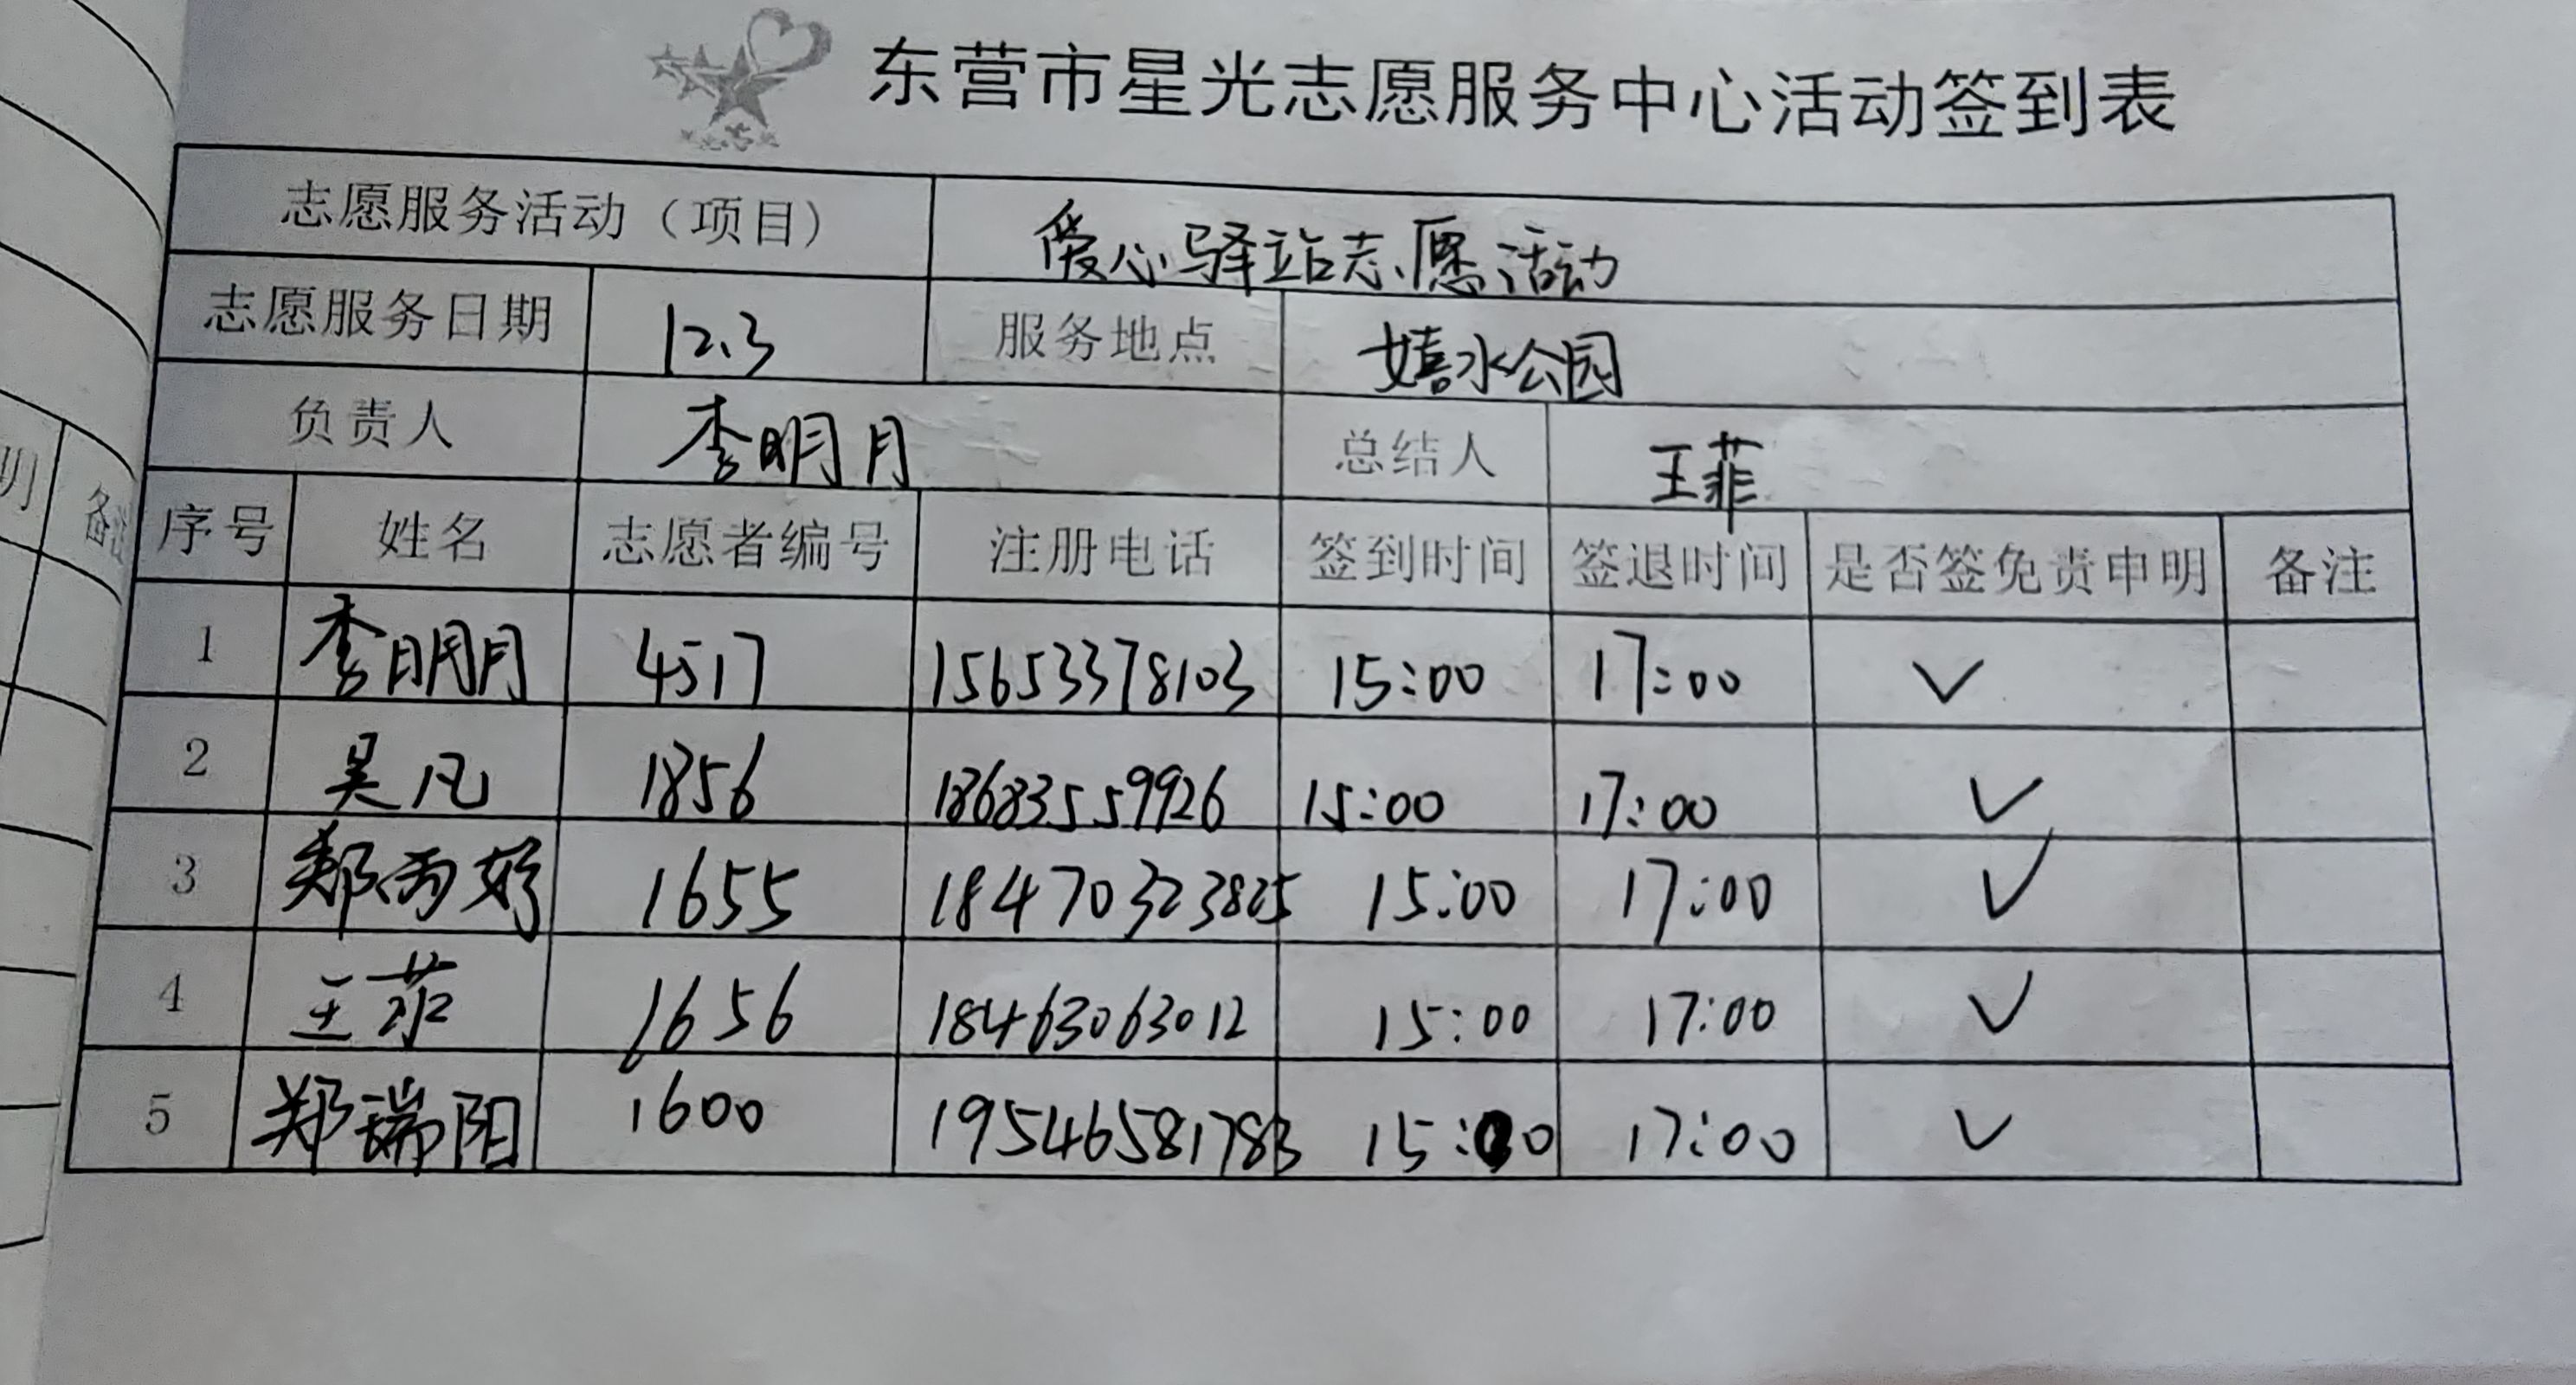 东营市星光志愿服务中心活动签到表
志愿服务活动（项目） 爱心驿站志愿活动
志愿服务日期 12.3 服务地点 嬉水公园
负责人 李明月 总结人 王菲
序号 姓名 志愿者编号 注册电话 签到时间 签退时间 是否签免责申明 备注
1 李明月 4517 15653378103 15:00 17:00 ✓
2 吴凡 1856 18683559926 15:00 17:00 ✓
3 郑雨好 1655 18470323825 15:00 17:00 ✓
4 王菲 1656 18463063012 15:00 17:00 ✓
5 郑瑞阳 1600 19546581783 15:00 17:00 ✓
明 备注